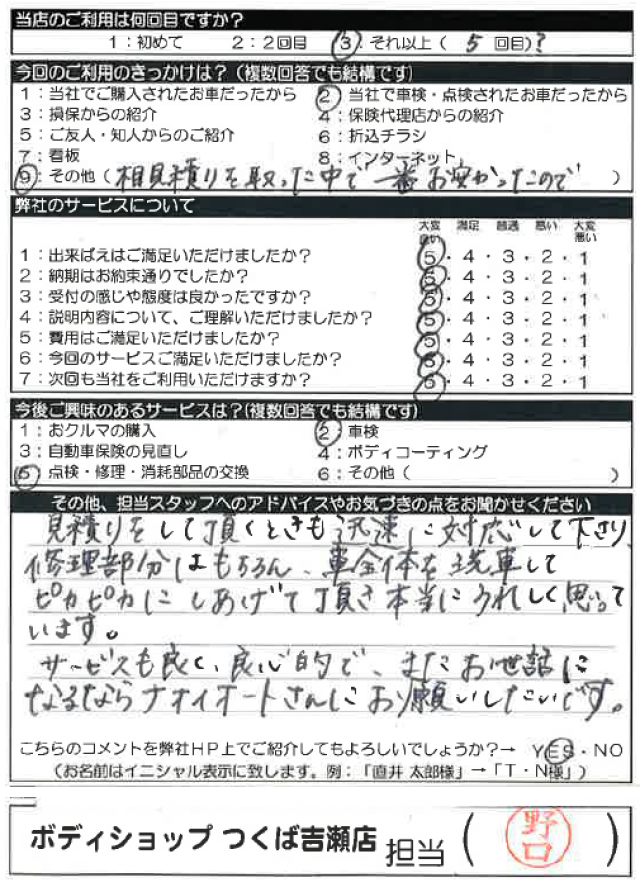 当店のご利用は何回目ですか？
1：初めて　2：2回目　3：それ以上（ 5 回目）?
今回のご利用のきっかけは？（複数回答でも結構です）
1：当社でご購入されたお車だったから　2：当社で車検・点検されたお車だったから
3：損保からの紹介　4：保険代理店からの紹介
5：ご友人・知人からのご紹介　6：折込チラシ
7：看板　8：インターネット
9：その他（相見積りを取った中で一番お安かったので）
弊社のサービスについて
大変良い　満足　普通　悪い　大変悪い
1：出来ばえはご満足いただけましたか？　5・4・3・2・1
2：納期はお約束通りでしたか？　5・4・3・2・1
3：受付の感じや態度は良かったですか？　5・4・3・2・1
4：説明内容について、ご理解いただけましたか？　5・4・3・2・1
5：費用はご満足いただけましたか？　5・4・3・2・1
6：今回のサービスご満足いただけましたか？　5・4・3・2・1
7：次回も当社をご利用いただけますか？　5・4・3・2・1
今後ご興味のあるサービスは？（複数回答でも結構です）
1：おクルマの購入　2：車検
3：自動車保険の見直し　4：ボディコーティング
5　点検・修理・消耗部品の交換　6：その他（　）
その他、担当スタッフへのアドバイスやお気づきの点をお聞かせください
見積りをして頂くときも迅速に対応して下さり、
修理部分はもちろん、車全体を洗車して
ピカピカにしあげて頂き本当にうれしく思って
います。
サービスも良く、良心的で、またお世話に
なるならナオイオートさんにお願いしたいです。
こちらのコメントを弊社HP上でご紹介してもよろしいでしょうか？→　YES・NO
（お名前はイニシャル表示に致します。例：「直井 太郎様」→「T・N様」）
ボディショップ つくば吉瀬店 担当（野口）